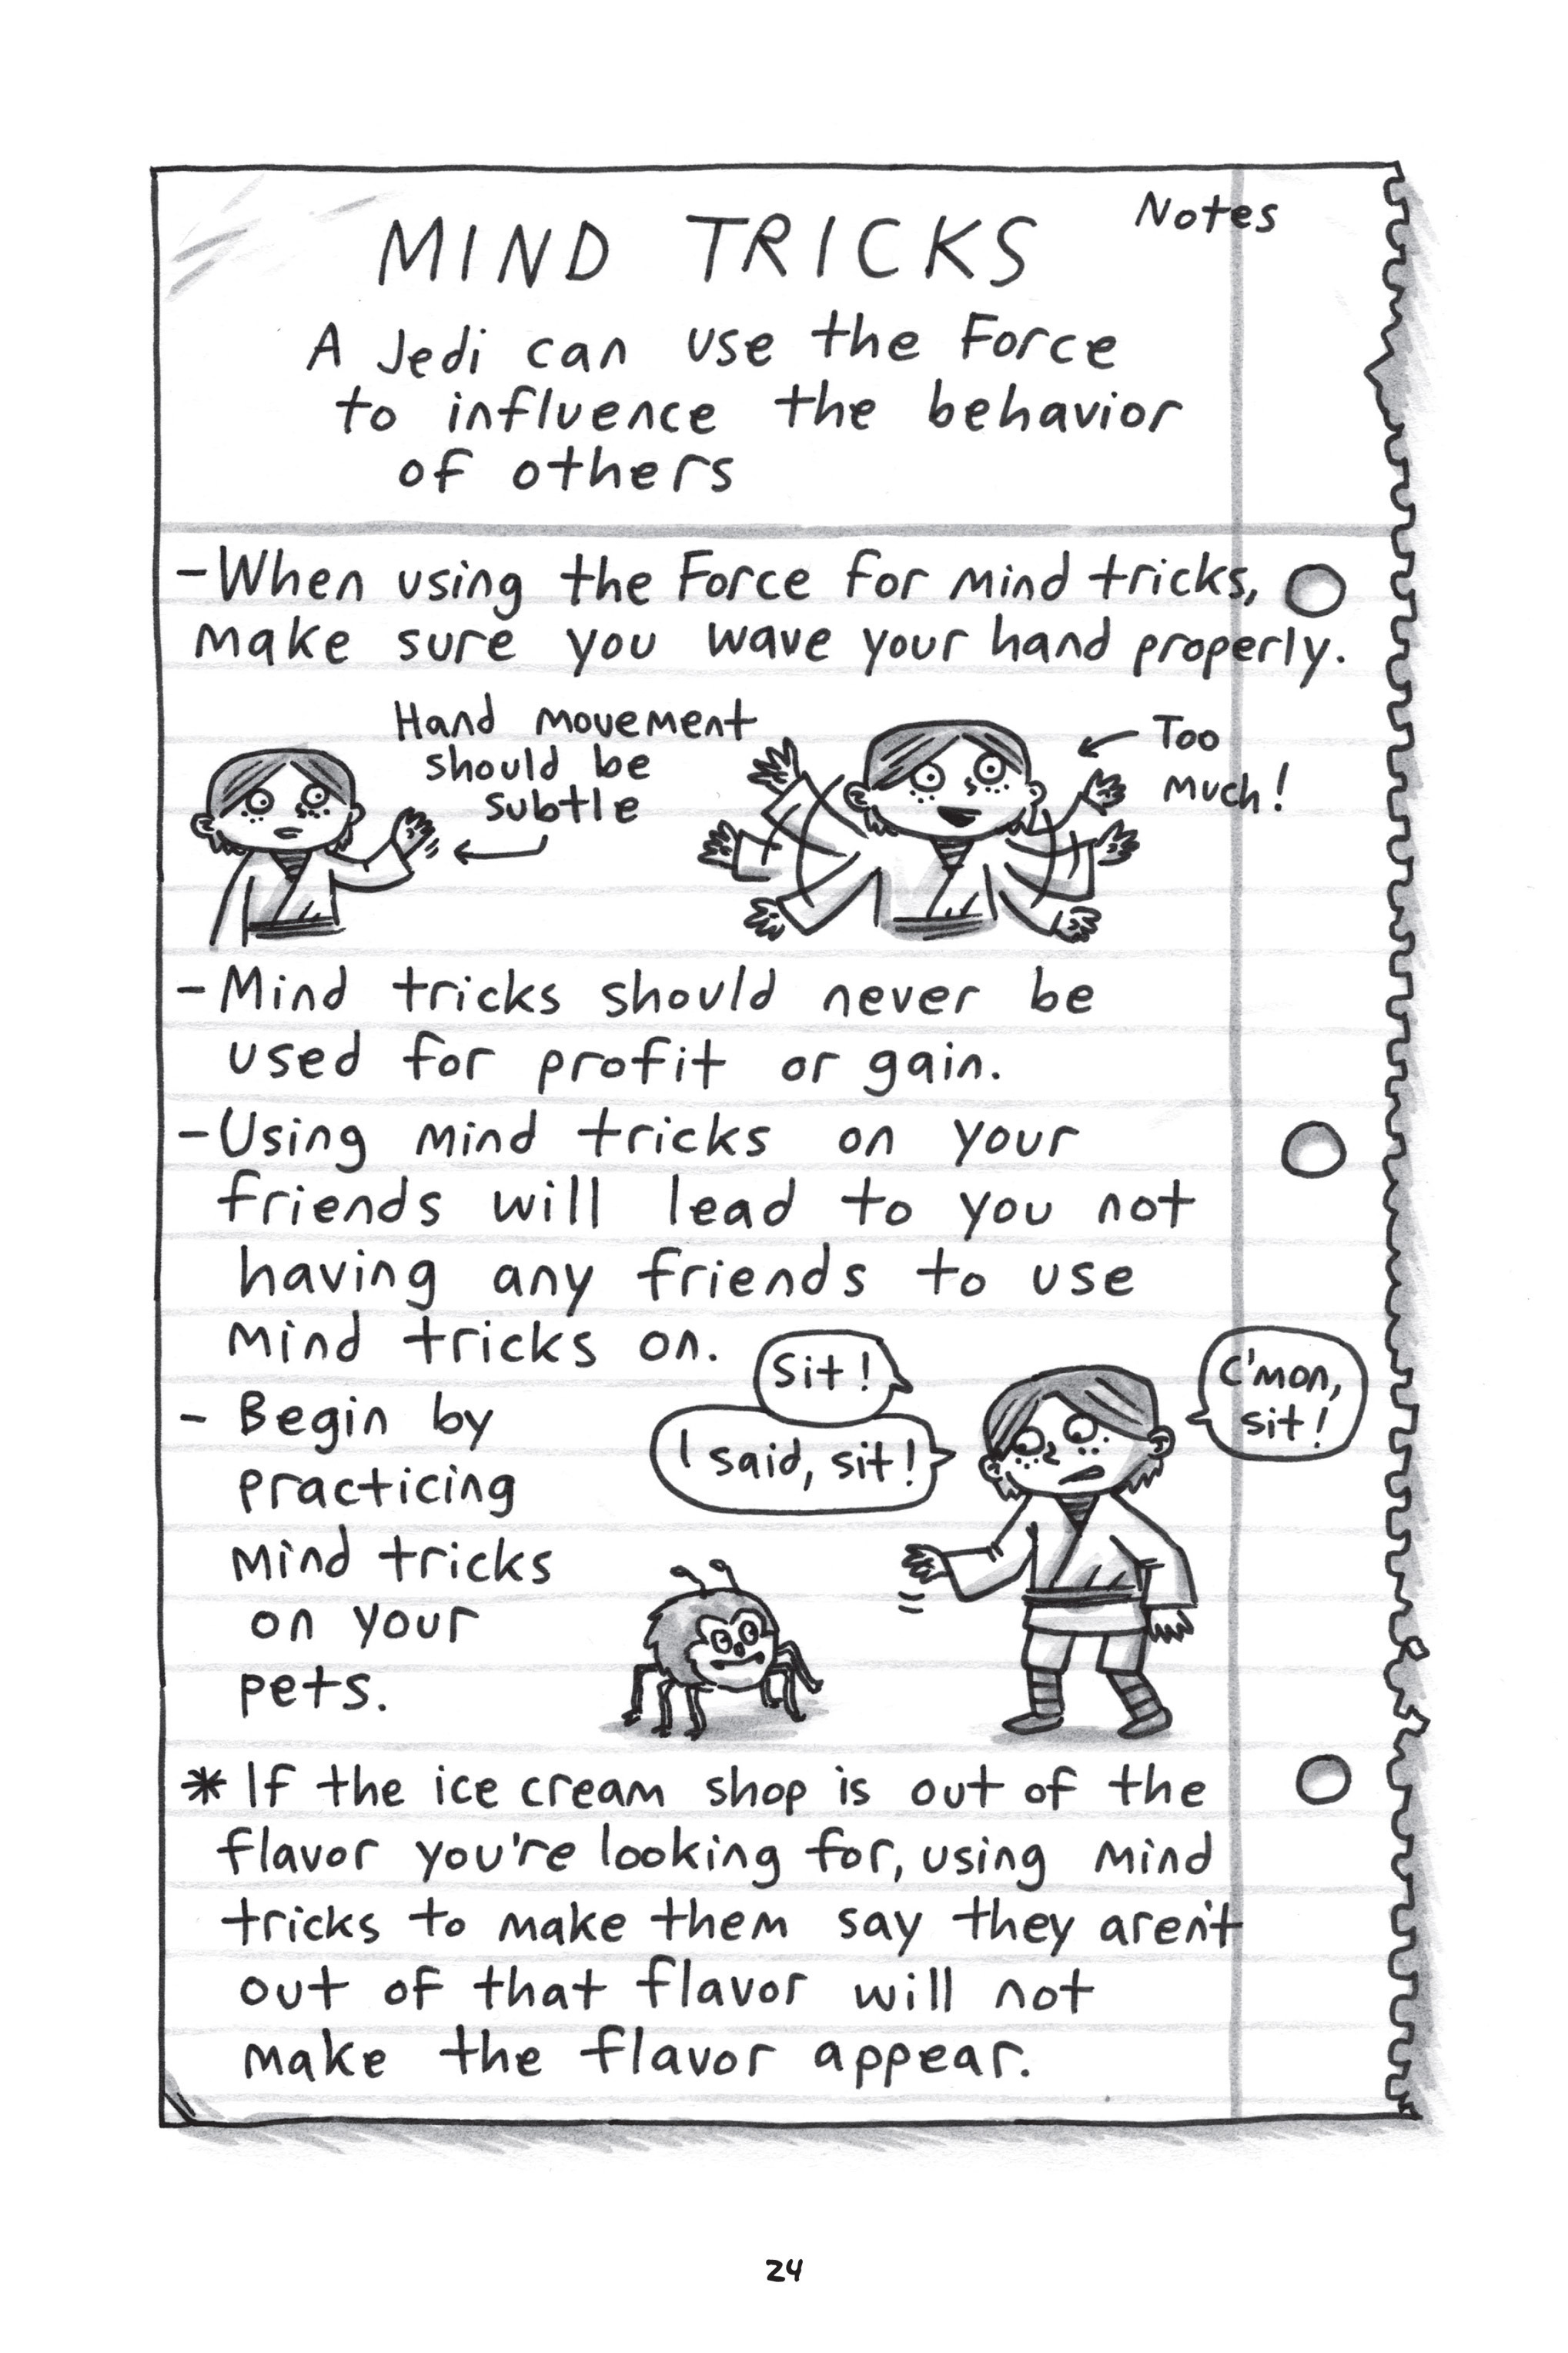 Notes
MIND TRICKS
A Jedi can use the Force
to influence the behavior
of others
-When using the Force for mind tricks,
make sure you wave your hand properly.
Hand movement
should be
subtle
Too
much!
-Mind tricks should never be
used for profit or gain.
-Using mind tricks on your
friends will lead to you not
having any friends to use
mind tricks on.
- Begin by
practicing
mind tricks
on your
pets.
Sit!
I said, sit!
C'mon,
sit!
* If the ice cream shop is out of the
flavor you're looking for, using mind
tricks to make them say they aren't
out of that flavor will not
make the flavor appear.
24